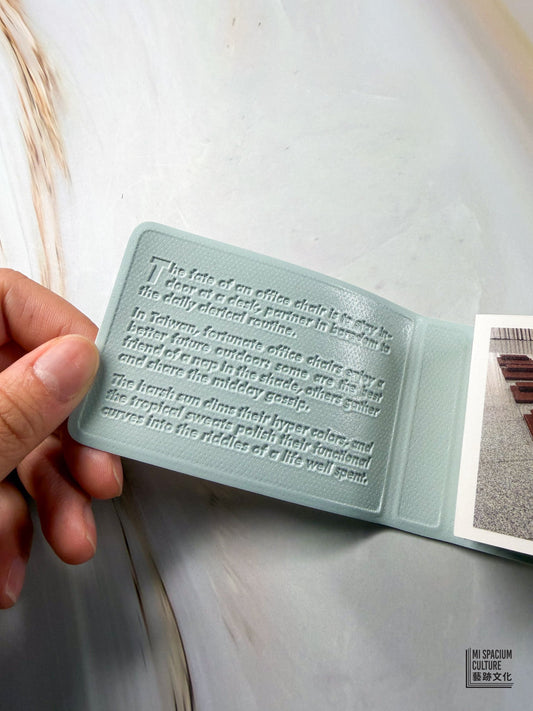 The fate of an office chair is to stay in-
door at a desk, partner in boredom to
the daily clerical routine.
In Taiwan, fortunate office chairs enjoy a
better future outdoor: some are the best
friend of a nap in the shade, others gather
and share the midday gossip.
The harsh sun dims their hyper colors, and
the tropical sweats polish their functional
curves into the riddles of a life well spent.
MI SPACIUM
CULTURE
藝跡文化